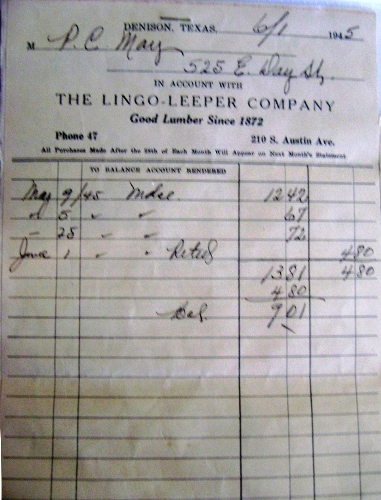 DENISON, TEXAS. 6/1 1945
M P. C. May
525 E. Day St.
IN ACCOUNT WITH
THE LINGO-LEEPER COMPANY
Good Lumber Since 1872
Phone 47 210 S. Austin Ave.
All Purchases Made After the 28th of Each Month Will Appear on Next Month's Statement
TO BALANCE ACCOUNT RENDERED
May 9/45 Mdse. 12 42
" 5 " " 67
" 25 " " 72
June 1 " " 4 80
13 81 4 80
4 80
Bal. 9 01